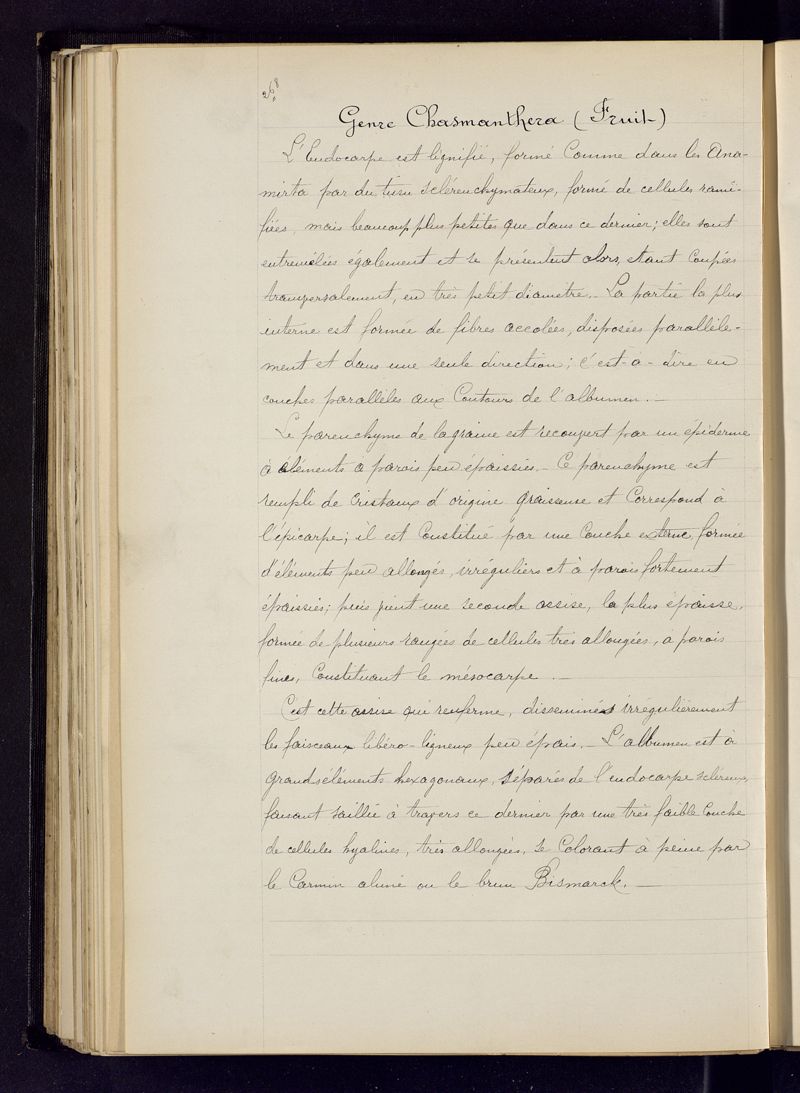 268
Genre Chasmanthera (Fruit)
L'Endocarpe est lignifié, formé Comme dans les Ana-
mirta par du tissu sclérenchymateux, formé de cellules rami-
fiées, mais beaucoup plus petites que dans ce dernier; elles sont
entremêlées également et se présentent alors, étant Coupées
transversalement, en très petit diamètre. — La partie la plus
interne est formée de fibres accolées, disposées parallèle-
ment et dans une seule direction; c'est-à-dire en
couches parallèles aux Contours de l'albumen. —
Le parenchyme de la graine est recouvert par un epiderme
à éléments à parois peu épaissies — Ce parenchyme est
rempli de Cristaux d'origine graisseuse et Correspond à
l'épicarpe; il est Constitué par une Couche externe, formée
d'éléments peu allongés, irréguliers et à parois fortement
épaissies; puis vient une seconde assise, la plus épaisse,
formée de plusieurs rangées de cellules très allongées, a parois
fines, Constituant le mésocarpe. —
C'est cette assise qui renferme, disseminés irrégulièrement
les faisceaux libéro-ligneux peu épais. — L'albumen est à
grands éléments hexagonaux, séparés de l'endocarpe scléreux,
faisant saillie à travers ce dernier par une très faible Couche
de cellules hyalines, très allongées, se Colorant à peine par
le Carmin aluné ou le brun Bismarck. —